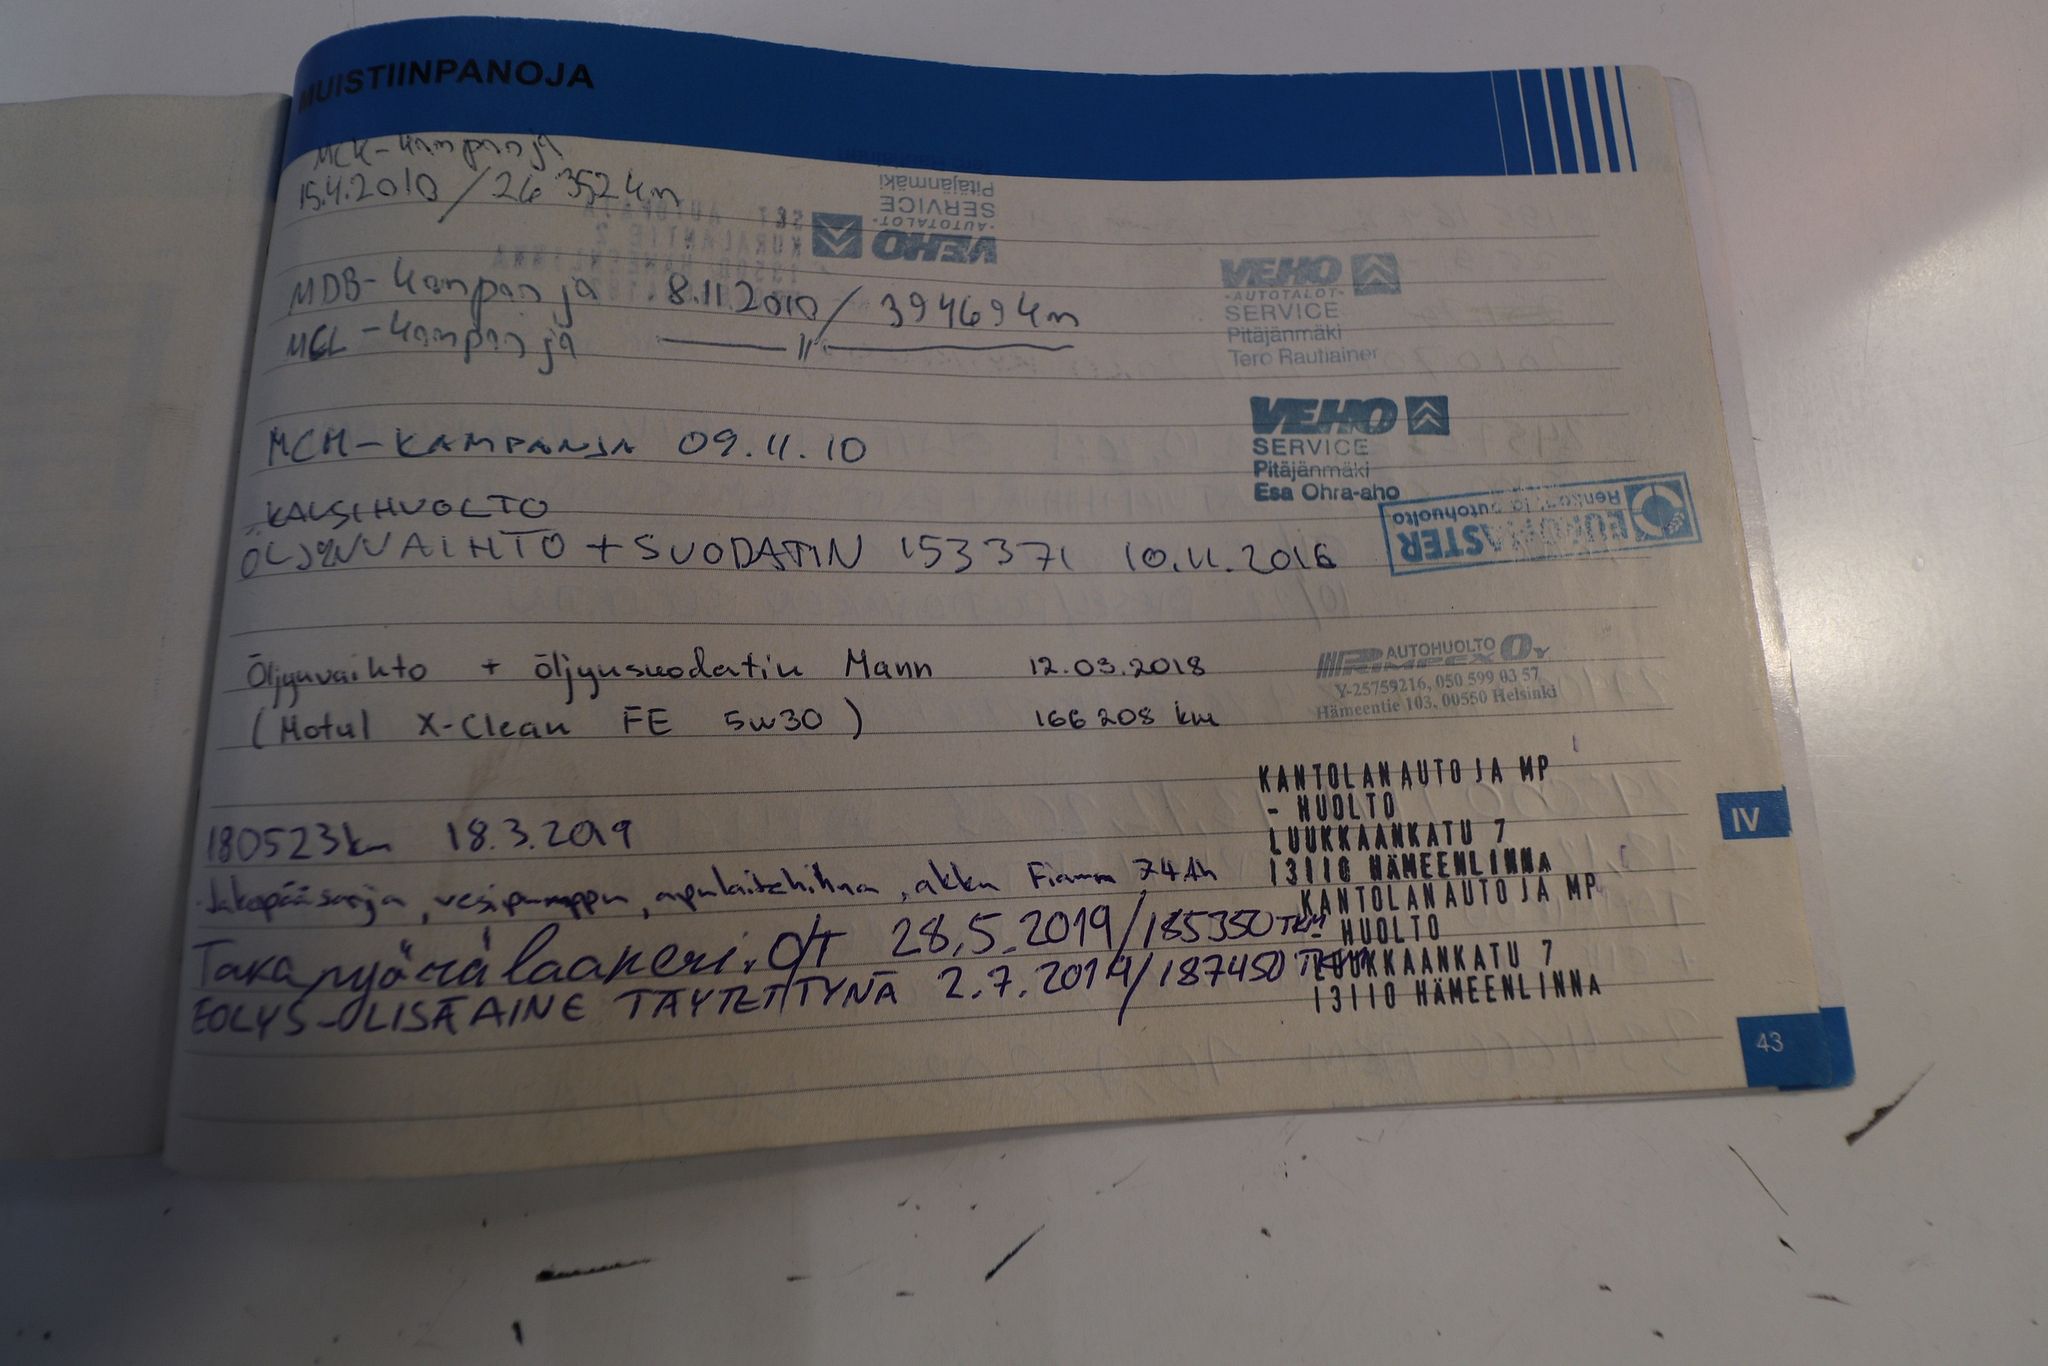 MUISTIINPANOJA
MCK-kampanja
15.4.2010 / 26 352 km
Pitäjänmäki
SERVICE
-AUTOTALOT-
VEHO
MDB-kampanja 8.11.2010 / 394694km
MCL-kampanja -----"-----
VEHO
-AUTOTALOT-
SERVICE
Pitäjänmäki
Tero Rautiainer
MCM-KAMPANJA 09.11.10
VEHO
SERVICE
Pitäjänmäki
Esa Ohra-aho
KAUSIHUOLTO
ÖLJYNVAIHTO + SUODATIN 153371 10.11.2016
EUROMASTER
Renkaat ja autohuolto
Öljynvaihto + öljynsuodatin Mann 12.03.2018
(Motul X-Clean FE 5w30) 166 208 km
AUTOHUOLTO
RIMPEX OY
Y-25759216, 050 599 03 57
Hämeentie 103, 00550 Helsinki
180523km 18.3.2019
Jakopääsarja, vesipumppu, apulaitehihna, akku Fiamm 74Ah
KANTOLAN AUTO JA MP
- HUOLTO
LUUKKAANKATU 7
13110 HÄMEENLINNA
Takapyörä laakeri. O/T 28.5.2019/185350TKM
EOLYS-LISÄAINE TÄYTETTYNÄ 2.7.2019/187450 TKM
KANTOLAN AUTO JA MP
- HUOLTO
LUUKKAANKATU 7
13110 HÄMEENLINNA
IV
43